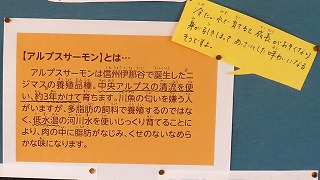 冷たい水で育てると成長がおそくなり
身が引きしまってあっさりした味わいになる
そうですよ。
【アルプスサーモン】とは…
アルプスサーモンは信州伊那谷で誕生したニ
ジマスの養殖品種。中央アルプスの清流を使
い、約3年かけて育ちます。川魚の匂いを嫌う人
がいますが、多脂肪の飼料で養殖するのではな
く、低水温の河川水を使いじっくり育てることに
より、肉の中に脂肪がなじみ、くせのないなめら
かな味になります。